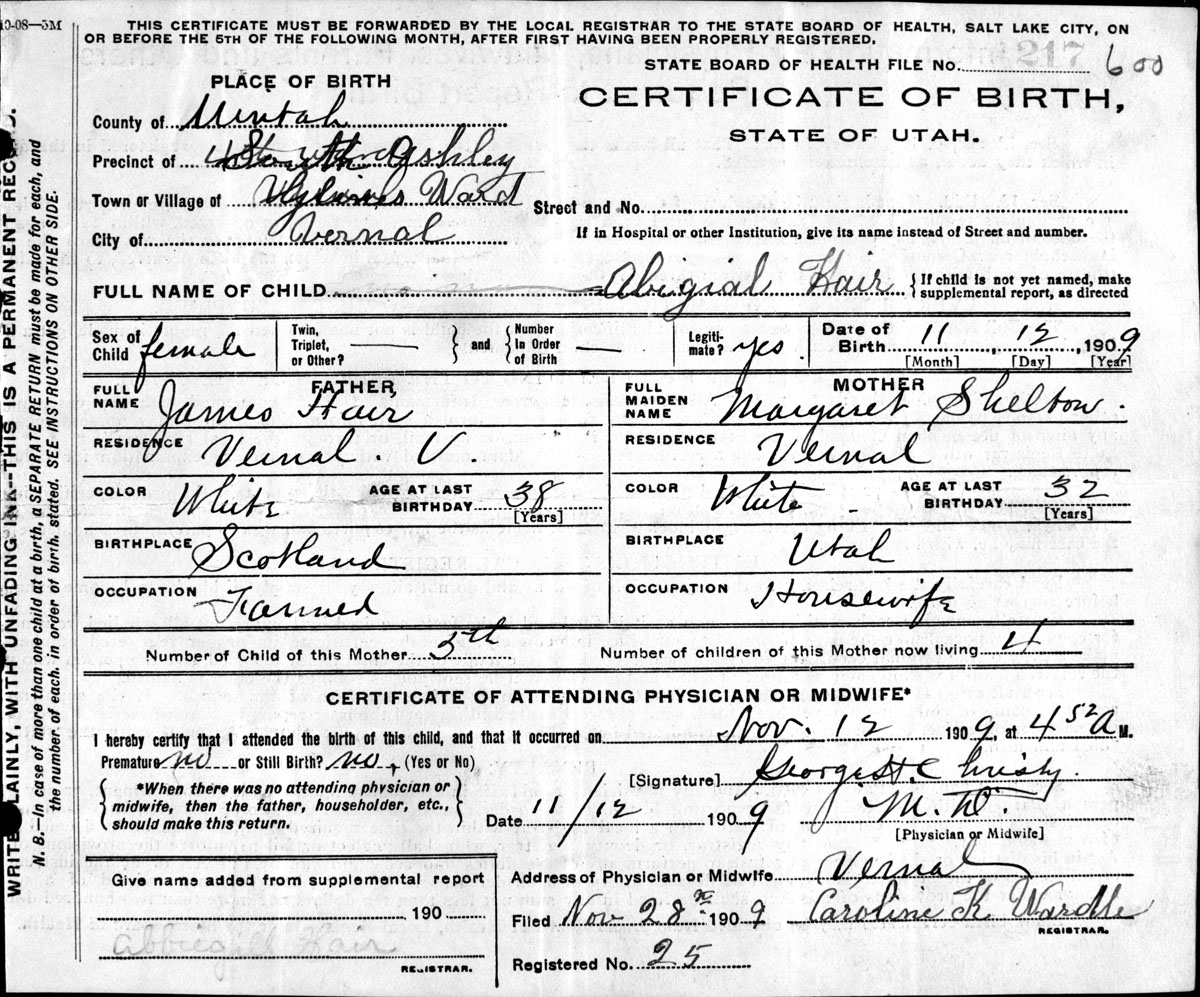 10-08—3M
THIS CERTIFICATE MUST BE FORWARDED BY THE LOCAL REGISTRAR TO THE STATE BOARD OF HEALTH, SALT LAKE CITY, ON
OR BEFORE THE 5TH OF THE FOLLOWING MONTH, AFTER FIRST HAVING BEEN PROPERLY REGISTERED.
STATE BOARD OF HEALTH FILE No. 600
217
PLACE OF BIRTH
CERTIFICATE OF BIRTH,
STATE OF UTAH.
County of Uintah
Precinct of Ashley
Town or Village of Ward
Street and No.
City of Vernal
If in Hospital or other Institution, give its name instead of Street and number.
FULL NAME OF CHILD Abigial Hair { If child is not yet named, make
supplemental report, as directed
Sex of Child female
Twin, Triplet, or Other? —
} and { Number In Order of Birth —
Legiti-mate? yes
Date of Birth 11, 12, 1909
[Month] [Day] [Year]
FATHER
FULL NAME James Hair
MOTHER
FULL MAIDEN NAME Margaret Shelton.
RESIDENCE Vernal. U.
RESIDENCE Vernal
COLOR White AGE AT LAST BIRTHDAY 38
[Years]
COLOR White AGE AT LAST BIRTHDAY 32
[Years]
BIRTHPLACE Scotland
BIRTHPLACE Utah
OCCUPATION Farmed
OCCUPATION Housewife
Number of Child of this Mother 5th
Number of children of this Mother now living 4
CERTIFICATE OF ATTENDING PHYSICIAN OR MIDWIFE*
I hereby certify that I attended the birth of this child, and that it occurred on Nov. 12 1909, at 4 52 A M.
Premature no or Still Birth? no, (Yes or No)
[Signature] George H. Christy
{ *When there was no attending physician or
midwife, then the father, householder, etc.,
should make this return. }
Date 11/12 1909
M.D.
[Physician or Midwife]
Give name added from supplemental report
190
Abbiegail Hair
REGISTRAR.
Address of Physician or Midwife Vernal
Filed Nov 28 1909 Caroline K Wardle
REGISTRAR.
Registered No. 25
WRITE PLAINLY, WITH UNFADING INK--THIS IS A PERMANENT RECORD.
N. B.—In case of more than one child at a birth, a SEPARATE RETURN must be made for each, and
the number of each, in order of birth, stated. SEE INSTRUCTIONS ON OTHER SIDE.